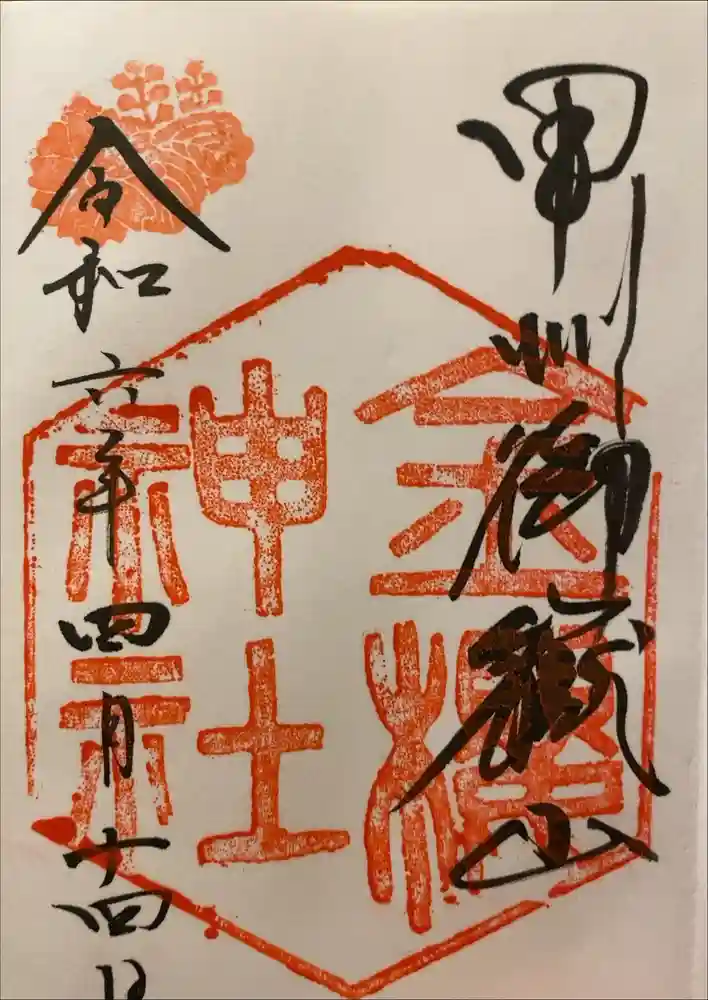 甲州御嶽山
金櫻
神社
令和六年四月十四日